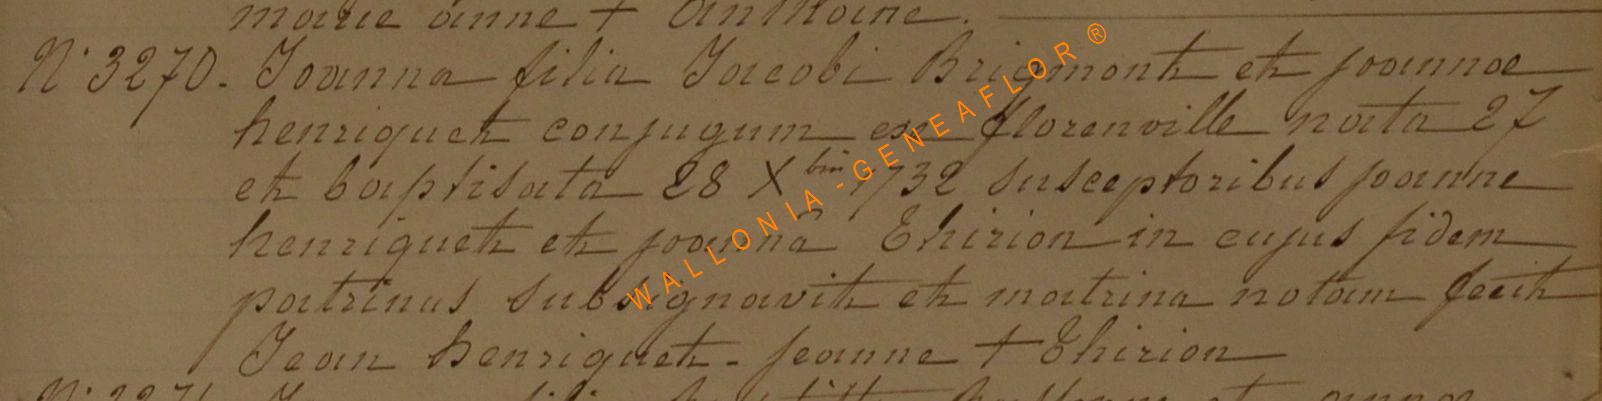 marie anne + Anthoine.
N° 3270. Joanna filia Jacobi Brigmont et joannae
henriquet conjugum ex florenville nata 27
et baptisata 28 Xbris 1732 susceptoribus joanne
henriquet et joanna Thirion in cujus fidem
patrinus subsignavit et matrina notam fecit
Jean henriquet - jeanne + Thirion
WALLONIA-GENEAFLOR ®